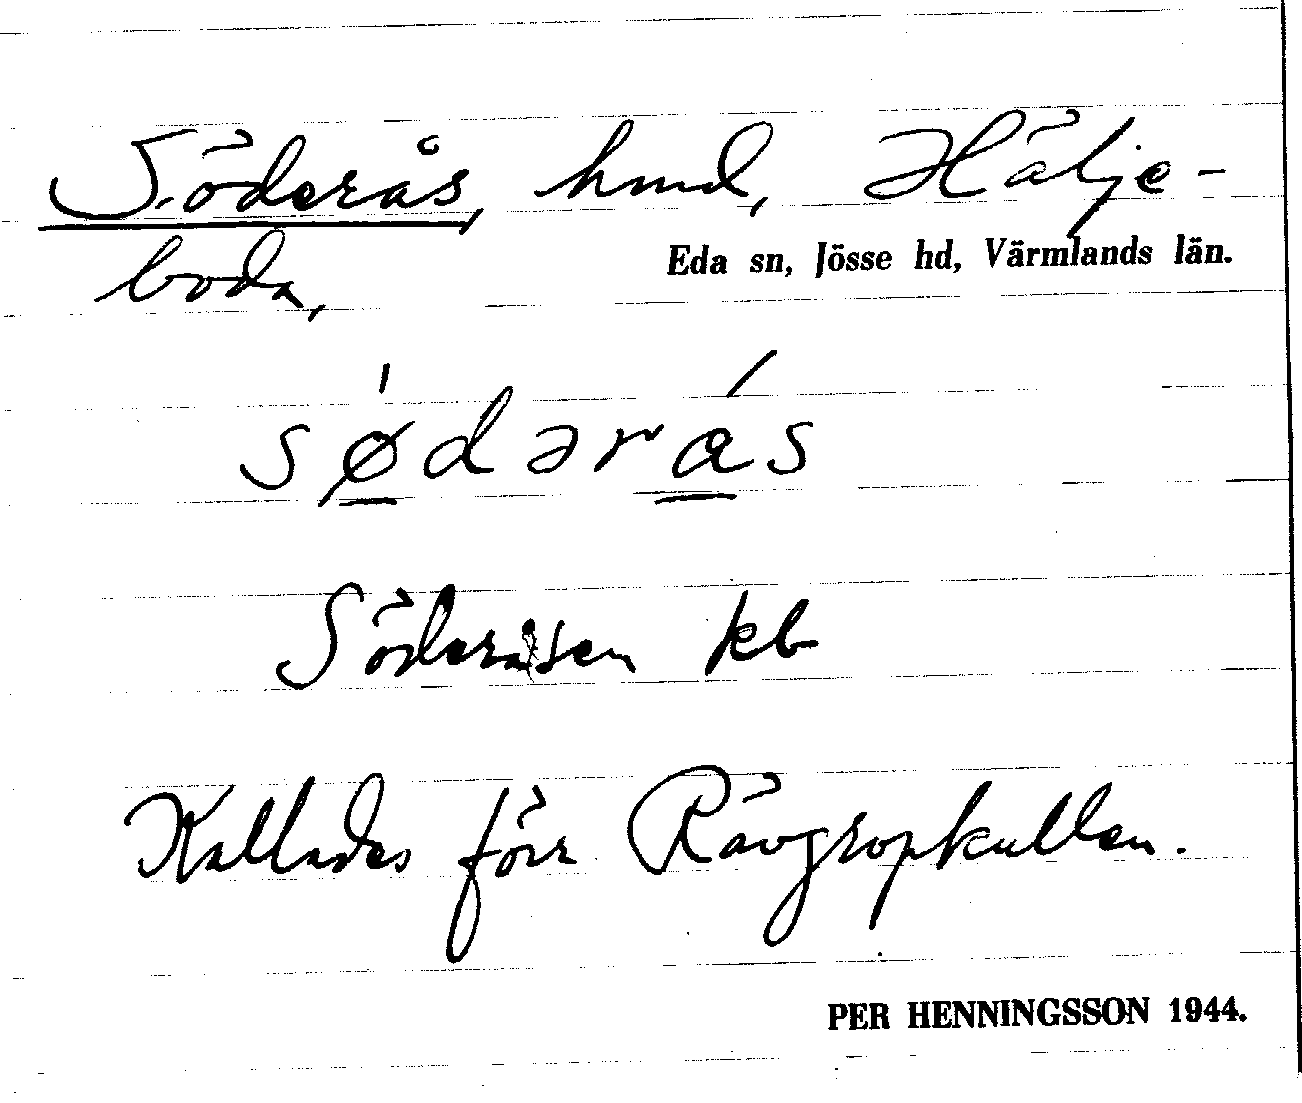 Söderås, hmd, Hälje-
boda,
Eda sn, Jösse hd, Värmlands län.
sødərås
Söderåsen kb
Kallades förr Rävgropkullen.
PER HENNINGSSON 1944.